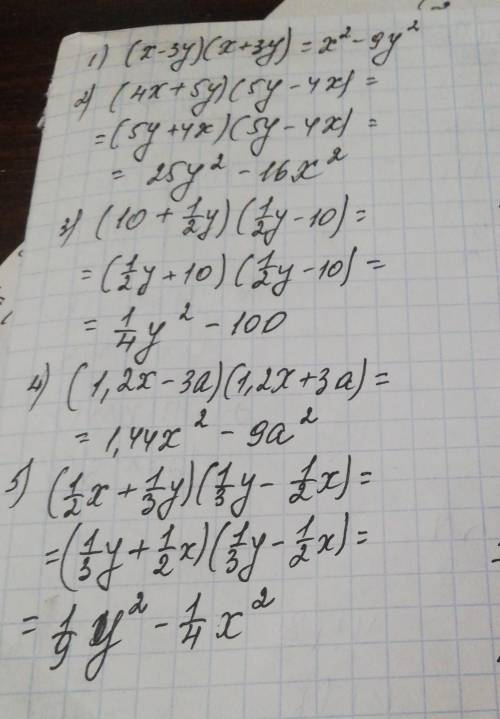 1) (x-3y)(x+3y)=x²-9y²
2) (4x+5y)(5y-4x)=
=(5y+4x)(5y-4x)=
= 25y²-16x²
3) (10+1/2y)(1/2y-10)=
=(1/2y+10)(1/2y-10)=
= 1/4y²-100
4) (1,2x-3a)(1,2x+3a)=
= 1,44x²-9a²
5) (1/2x+1/3y)(1/3y-1/2x)=
=(1/3y+1/2x)(1/3y-1/2x)=
= 1/9y²-1/4x²